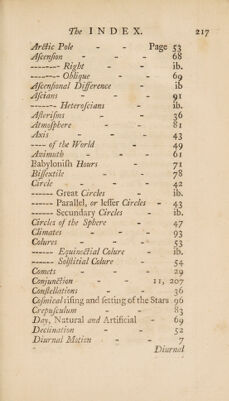 The INDEX. 217
Arctic Pole - - Page 53
Ascension - - - 68
-------- Right - - ib.
-------- Oblique - - 69
Ascensional Difference - ib
Ascians - - - 91
------- Heteroscians - ib.
Asterisms - - - 36
Atmosphere - - - 81
Axis - - - 43
---- of the World - - 49
Azimuth - - - 61
Babylonish Hours - - 71
Bissextile - - - 78
Circle - - - 42
------ Great Circles - ib.
------ Parallel, or lesser Circles - 43
------ Secundary Circles - ib.
Circles of the Sphere - 47
Climates - - - 93
Colures - - - 53
------ Equinoctial Colure - ib.
------ Solstitial Colure - 54
Comets - - - 29
Conjunction - - 11, 207
Constellations - - 36
Cosmical rising and setting of the Stars 96
Crepusculum - - 83
Day, Natural and Artificial - 69
Declination - - 52
Diurnal Motion - - 7
Diurnal